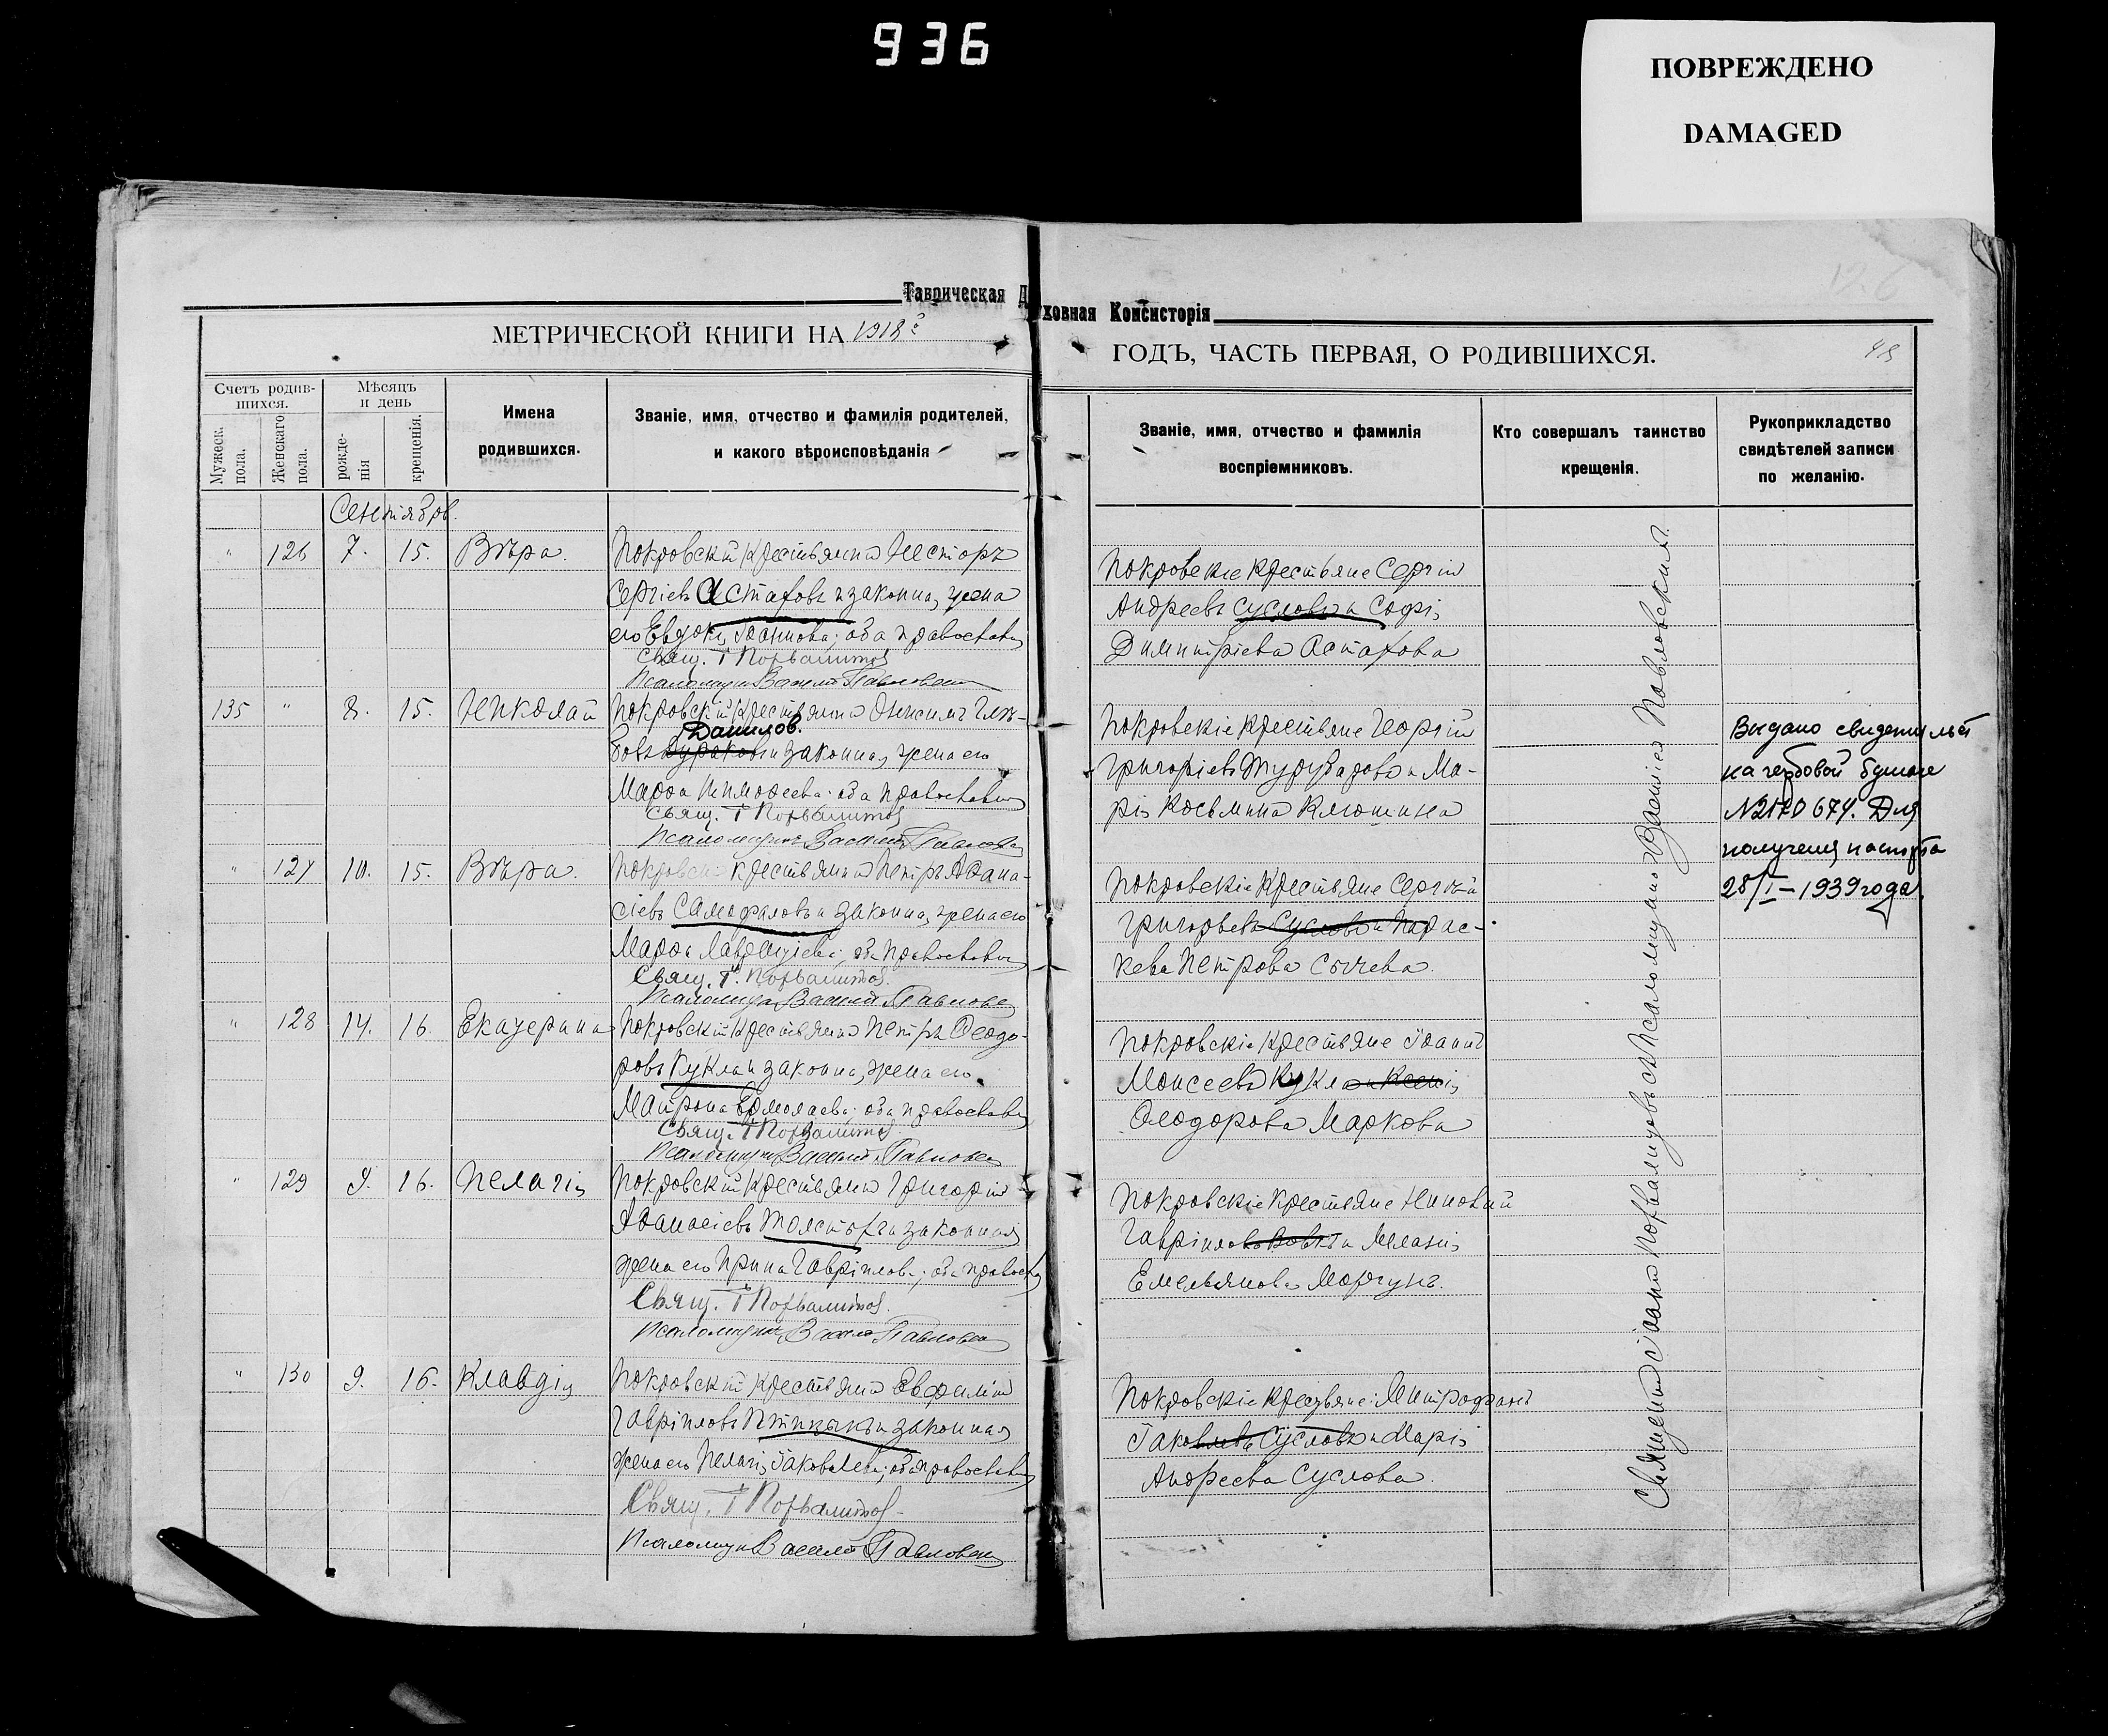 936
ПОВРЕЖДЕНО
DAMAGED
126
Таврическая Духовная Консисторія
МЕТРИЧЕСКОЙ КНИГИ НА 1918 г
ГОДЪ, ЧАСТЬ ПЕРВАЯ, О РОДИВШИХСЯ.
Счетъ родив-
шихся.
Мужеск.
пола.
Женскаго
пола.
Мѣсяцъ
и день
рожде-
нія
крещенія.
Имена
родившихся.
Званіе, имя, отчество и фамилія родителей,
и какого вѣроисповѣданія
Званіе, имя, отчество и фамилія
воспріемниковъ.
Кто совершалъ таинство
крещенія.
Рукоприкладство
свидѣтелей записи
по желанію.
Сентябрь.
" 126 7. 15. Вѣра. Покровскій крестьянинъ Несторъ
Сергіевъ Астафовъ и законная жена
его Евдокія Іоаннова; оба православн
Свящ. І Порвалитов
Псаломщик Василий Павловский
Покровскіе крестьяне Сергій
Андреевъ Сусловъ и Софія
Димитріева Астафова
135 " 8. 15. Николай Покровскій крестьянинъ Онисимъ Глѣ-
Данилов.
бовъ Дураковъ и законная жена его
Марѳа Тимоѳеева: оба православны
Свящ. І Порвалитов
Псаломщик Василий Павловский
Покровскіе крестьяне Георгій
Григоріевъ и Ма-
рія Косьмина Клюшина
Выдано свидетельст
на гербовой бумаге
№ 2170674. Для
получения паспорта
28/I – 1939 года.
" 127 10. 15. Вѣра. Покровскій крестьянинъ Петръ Аѳана-
сіевъ Самофаловъ и законная жена его
Марѳа Лаврентіева; оба православны
Свящ. І. Порвалитов.
Псаломщик Василий Павловский
Покровскіе крестьяне Сергѣй
Григорьевъ Сусловъ и Парас-
кева Петрова Сычева.
" 128 14. 16. Екатерина Покровскій крестьянинъ Петръ Ѳеодо-
ровъ Кукла и законная жена его
Матрона Ермолаева; оба православны
Свящ. І Порвалитов
Псаломщик Василий Павловский
Покровскіе крестьяне Іоаннъ
Моисеевъ Кукла и Ксенія
Ѳеодорова Маркова
" 129 9. 16. Пелагія Покровскій крестьянинъ Григорій
Аѳанасіевъ Толстыхъ и законная
жена его Ирина Гавріилова; оба правосл
Свящ. І Порвалитов.
Псаломщик Василий Павловский
Покровскіе крестьяне
Гавріиловъ Вовкъ и Меланія
Емельянова Моргунъ.
" 130 9. 16. Клавдія Покровскій крестьянинъ Евфимій
Гавріиловъ и законная
жена его Пелагія Іаковлева; оба православны
Свящ. І Порвалитов
Псаломщик Василий Павловский
Покровскіе крестьяне: Митрофанъ
Іаковлевъ Сусловъ и Марія
Андреева Суслова.
Священникъ Іоаннъ Порвалитовъ съ Псаломщикомъ Василіемъ Павловскимъ.